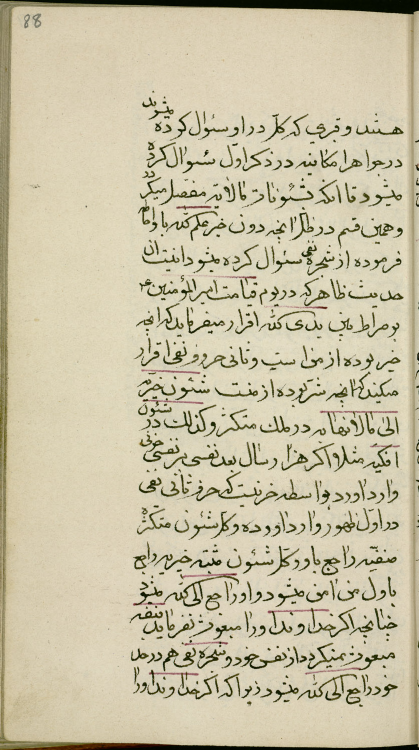 88
هستند و قبری که کل در او سئوال کرده میشوند
در جواهر امکانیه در ذکر اول سئوال کرده
میشود تا آنکه شئونات مالانهایه مفصل میگردد
و همین قسم در ظل آنچه دون خیر علم الله باو
فرموده از شجره نفی سئوال کرده میشود اینست آن
حدیث ظاهر که در یوم قیامت امیر المؤمنین ع
بر صراط بین یدی الله اقرار میفرماید که آنچه
خیر بوده از من است و ثانی حروف نفی اقرار
میکند که آنچه شر بوده از منست شئون خیریه
الی مالانهایه در ملک متکثر و کذلک در شئون
افکیه مثلا اگر هزار سال بعد نفسی بر نفسی حزنی
وارد آورد بواسطه حزنیست که حرف ثانی نفی
در اول ظهور وارد آورده و کل شئون متکثره
منفیه راجع باو و کل شئون مثبته خیریه راجع
باول من آمن میشود و او راجع الی الله میشود
چنانچه اگر خداوند او را مبعوث نفرماید بنفسه
مبعوث نمیگردد از نفس خود و شجره نفی هم در حد
خود راجع الی الله میشود زیرا که اگر خداوند او را